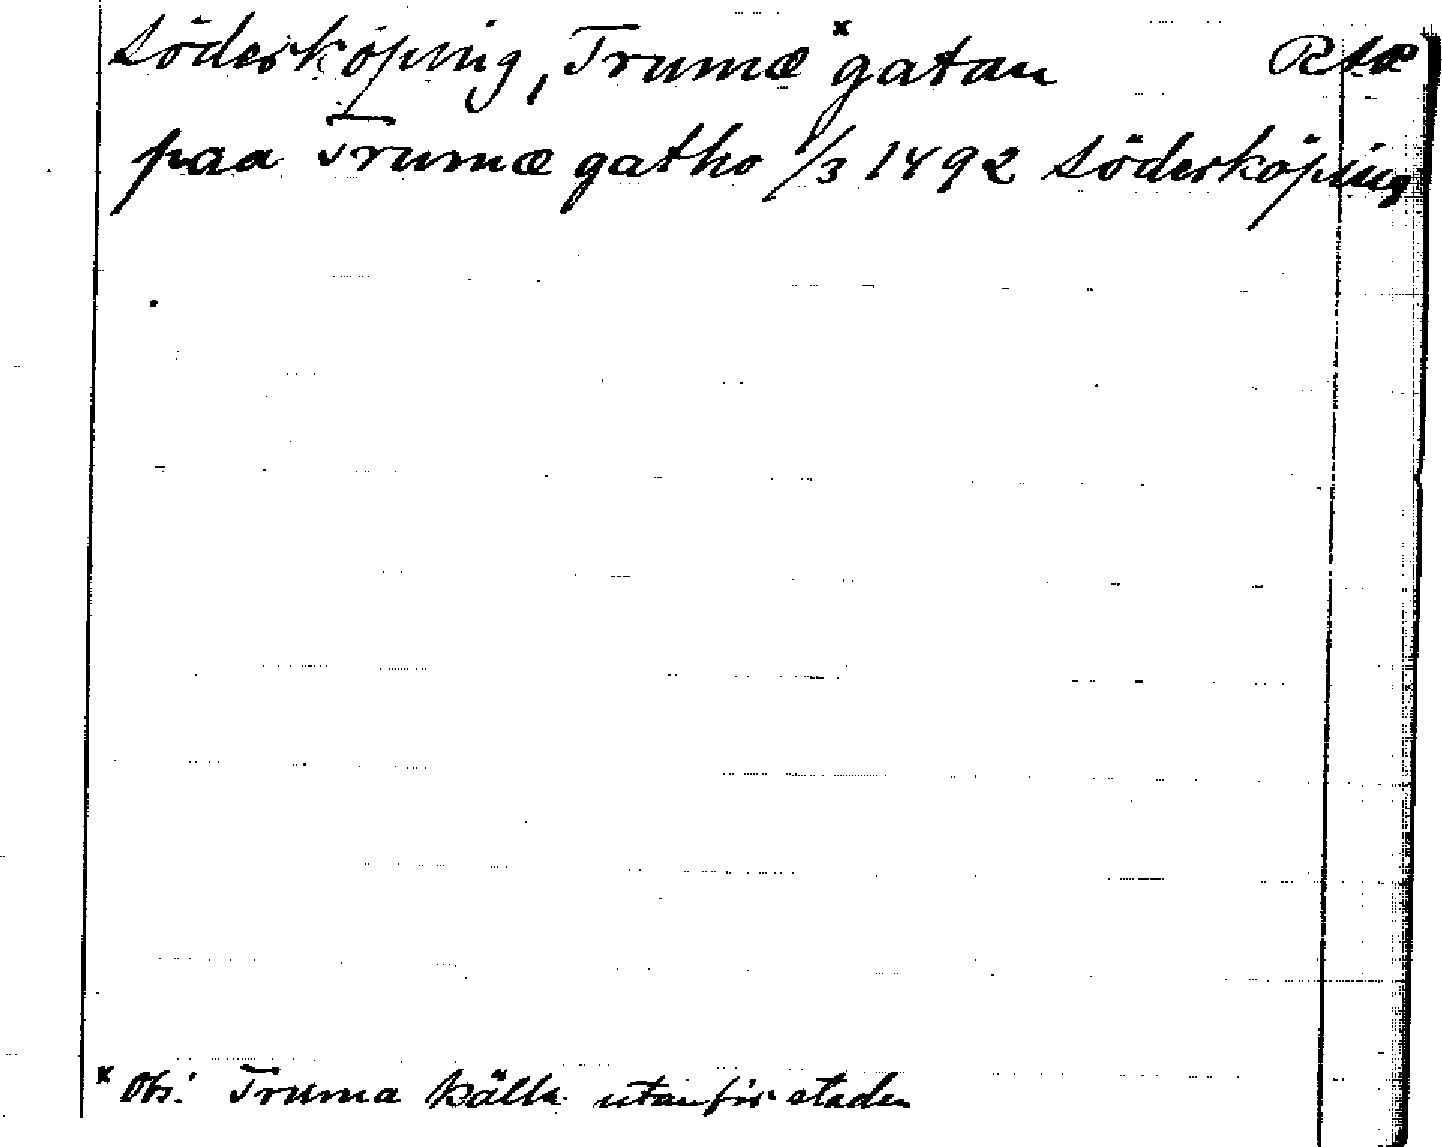 Söderköping, Trumæˣgatan
paa Trumæ gatho 1/3 1492 Söderköping
ˣ Obs! Truma källa utanför staden